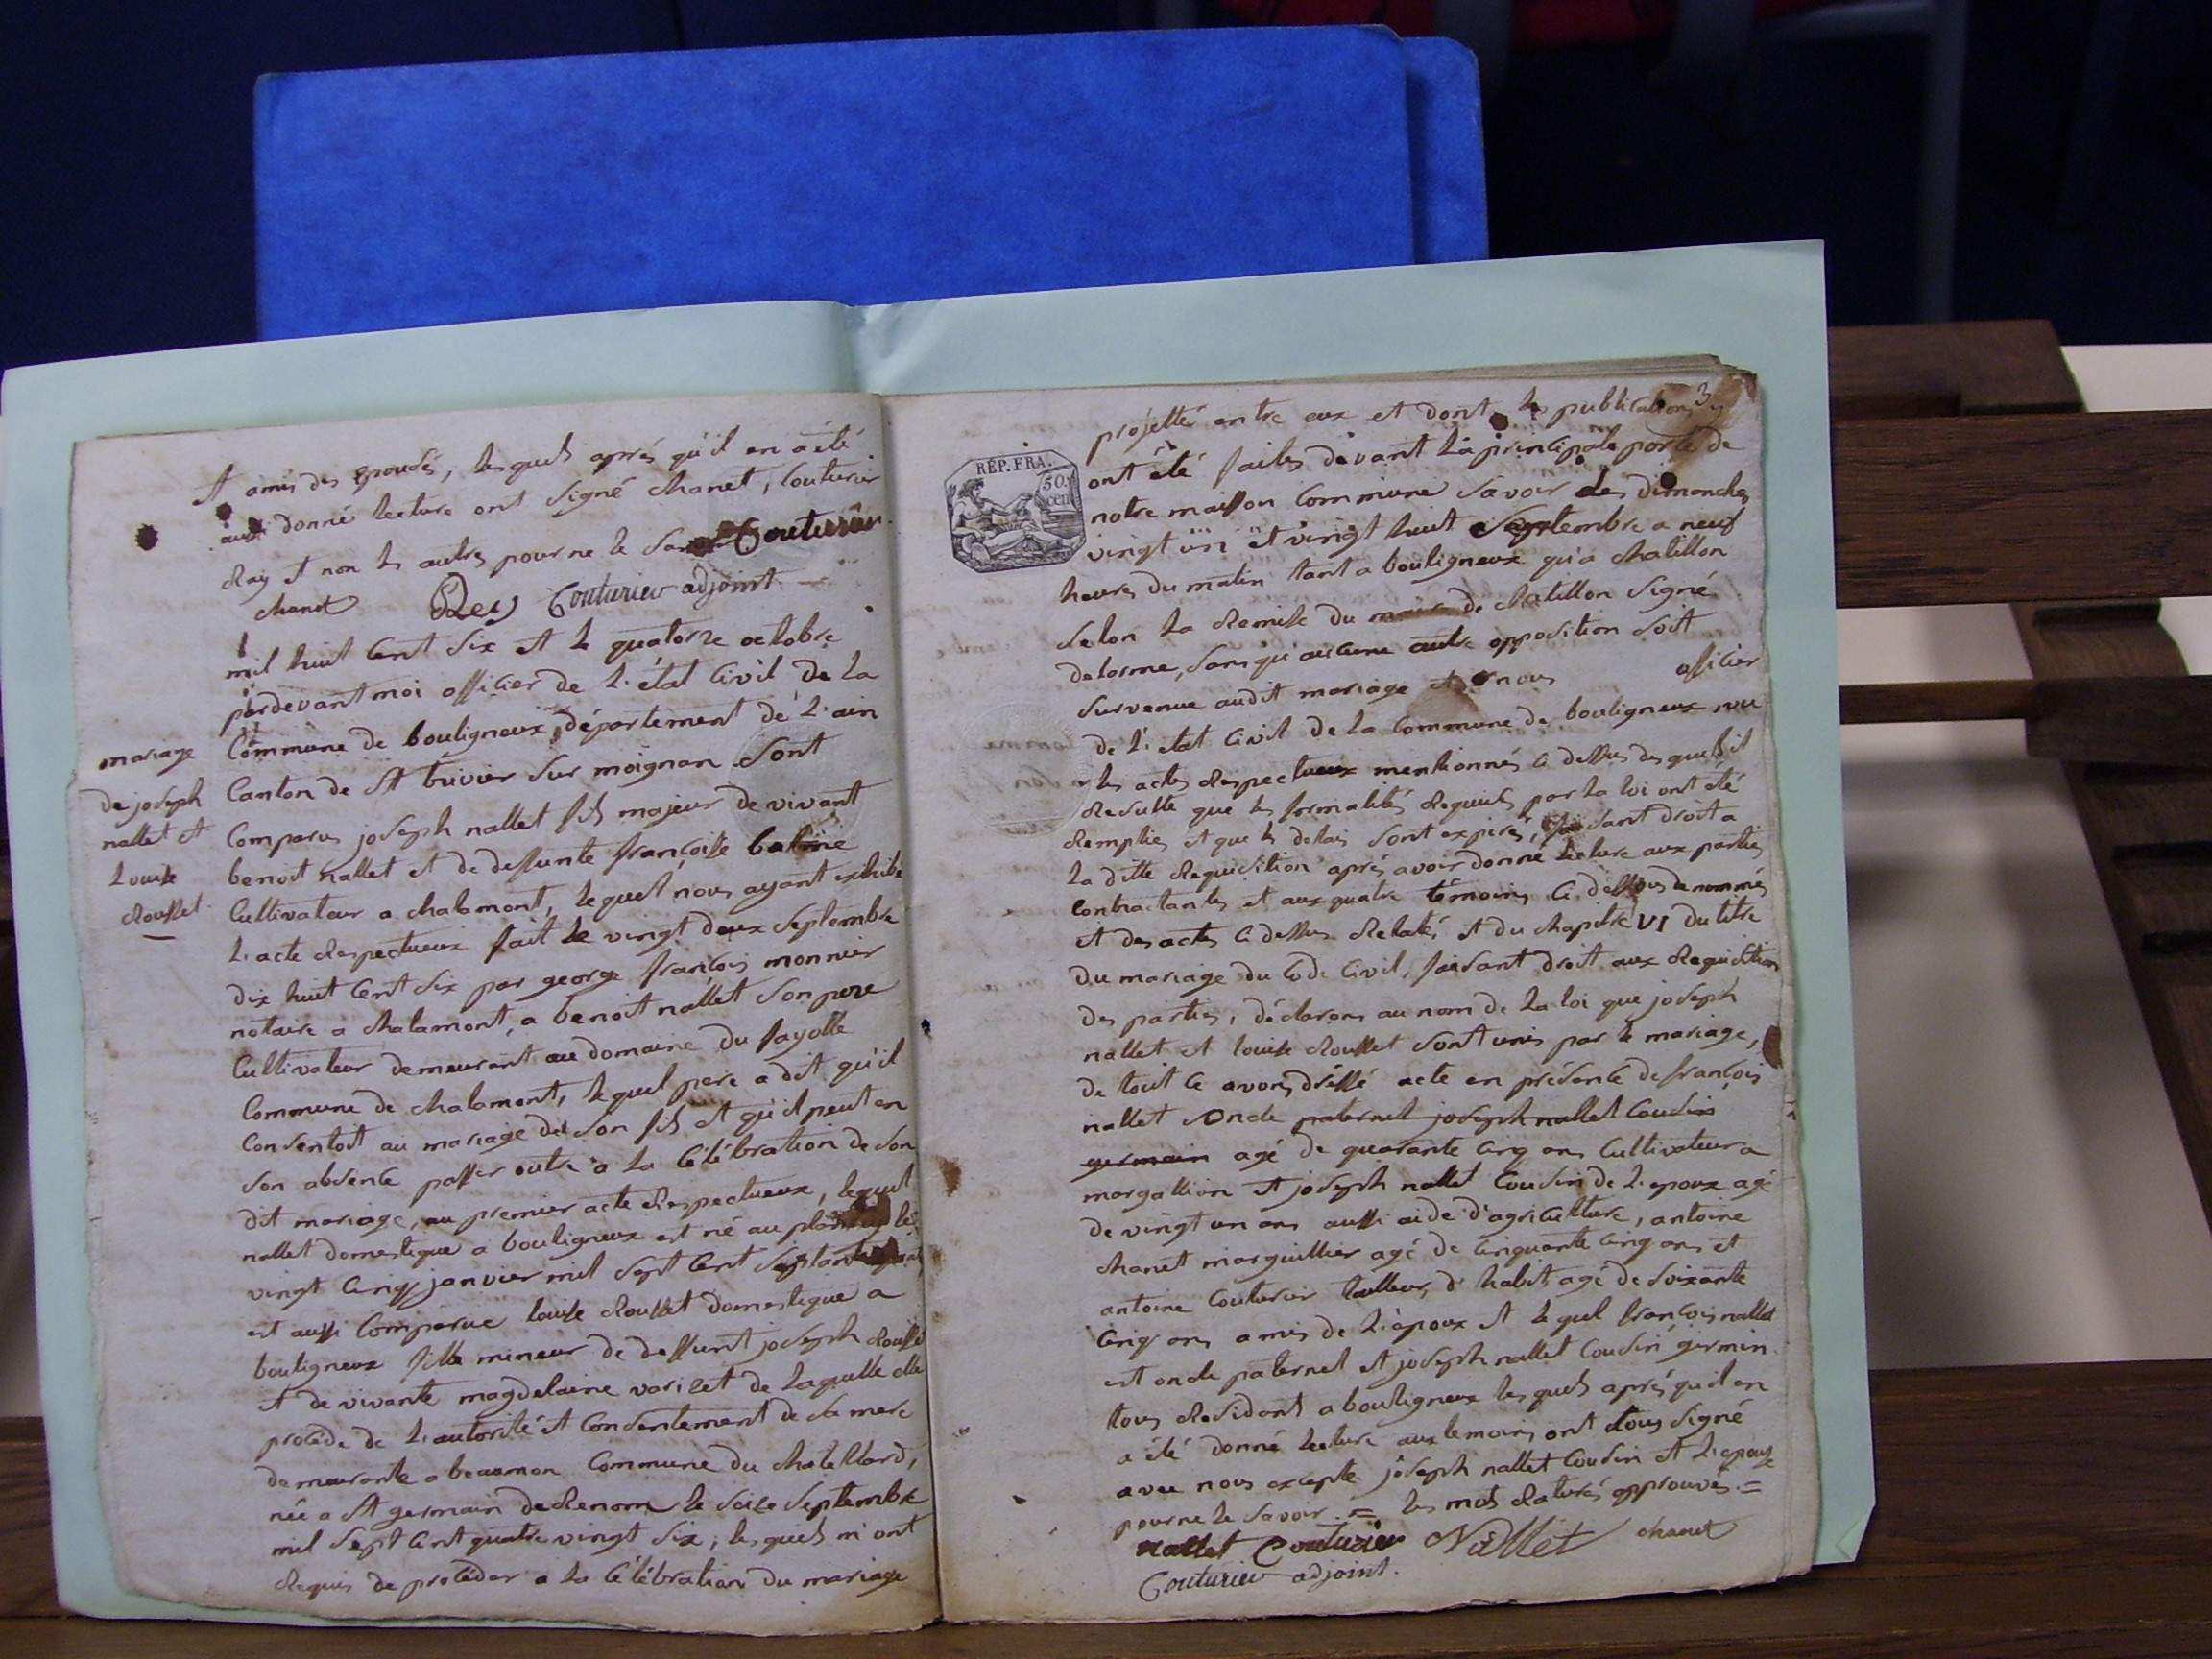 et amis des epousés, lesquels aprés qu'il en a été
aussi donné lecture ont signé chanet, couturier
Rey et non les autres pour ne le Couturier
chanet Rey Couturier adjoint
mil huit cent six et le quatorze octobre
pardevant moi officier de l'état civil de la
mariage
commune de bouligneux, département de l'ain
canton de St trivier sur moignan sont
de joseph
nallet et
louise
Rousset
comparus joseph nallet fils majeur de vivant
benoit nallet et de deffunte françoise
cultivateur a chalamont, lequel nous ayant exhibé
l'acte Respectueux fait le vingt deux septembre
dix huit cent six par george françois monnier
notaire a chalamont, a benoit nallet son pere
cultivateur demeurant au domaine du fayolle
commune de chalamont, lequel pere a dit qu'il
consentoit au mariage de son fils et qu'il peut en
son absence passer outre a la célébration de son
dit mariage, au premier acte Respectueux, lequel
nallet domestique a bouligneux est né au le
vingt cinq janvier mil sept cent
est aussi comparue louise Rousset domestique a
bouligneux fille mineur de deffunt joseph Rousset
et de vivante magdelaine varizet de laquelle elle
procéde de l'autorité et consentement de sa mere
demeurante a beaumon commune du chatellard,
née a St germain de Renom le seize septembre
mil sept cent quatre vingt six, lesquels m'ont
Requis de procéder a la célébration du mariage
3
projetté entre eux et dont les publications
RÉP. FRA.
50
cent
ont été faites devant la principale porte de
notre maison commune savoir les dimanches
vingt un et vingt huit septembre a neuf
heures du matin tant a bouligneux qu'a chatillon
selon la Remise du maire de chatillon signé
delorme, sans qu'aucune autre opposition soit
survenue audit mariage et nous officier
de l'etat civil de la commune de bouligneux, vu
les actes Respectueux mentionnés ci dessus desquels il
Resulte que les formalités Requises par la loi ont été
Remplies et que les delais sont expirés, faisant droit a
la ditte Requisition aprés avoir donné lecture aux parties
contractantes et aux quatre témoins ci dessous denommés
et des actes ci dessus Relatés et du chapitre VI du titre
du mariage du code civil, faisant droit aux Requisition
des parties, déclarons au nom de la loi que joseph
nallet et louise Rousset sont unis par le mariage,
de tout ce avons dréssé acte en présence de françois
nallet oncle paternel joseph nallet cousin
germain agé de quarante cinq ans cultivateur a
et joseph nallet cousin de l'epoux agé
de vingt un ans aussi aide d'agriculture, antoine
chanet marguillier agé de cinquante cinq ans et
antoine couturier tailleur d'habits agé de soixante
cinq ans amis de l'époux et lequel françois nallet
est oncle paternel et joseph nallet cousin germin
tous Residant a bouligneux lesquels aprés qu'il en
a été donné lecture aux temoins ont tous signé
avec nous excepté joseph nallet cousin et l'epouse
pour ne le savoir. = les mots Raturés approuvés. =
nallet Couturier Nallet chanet
Couturier adjoint.